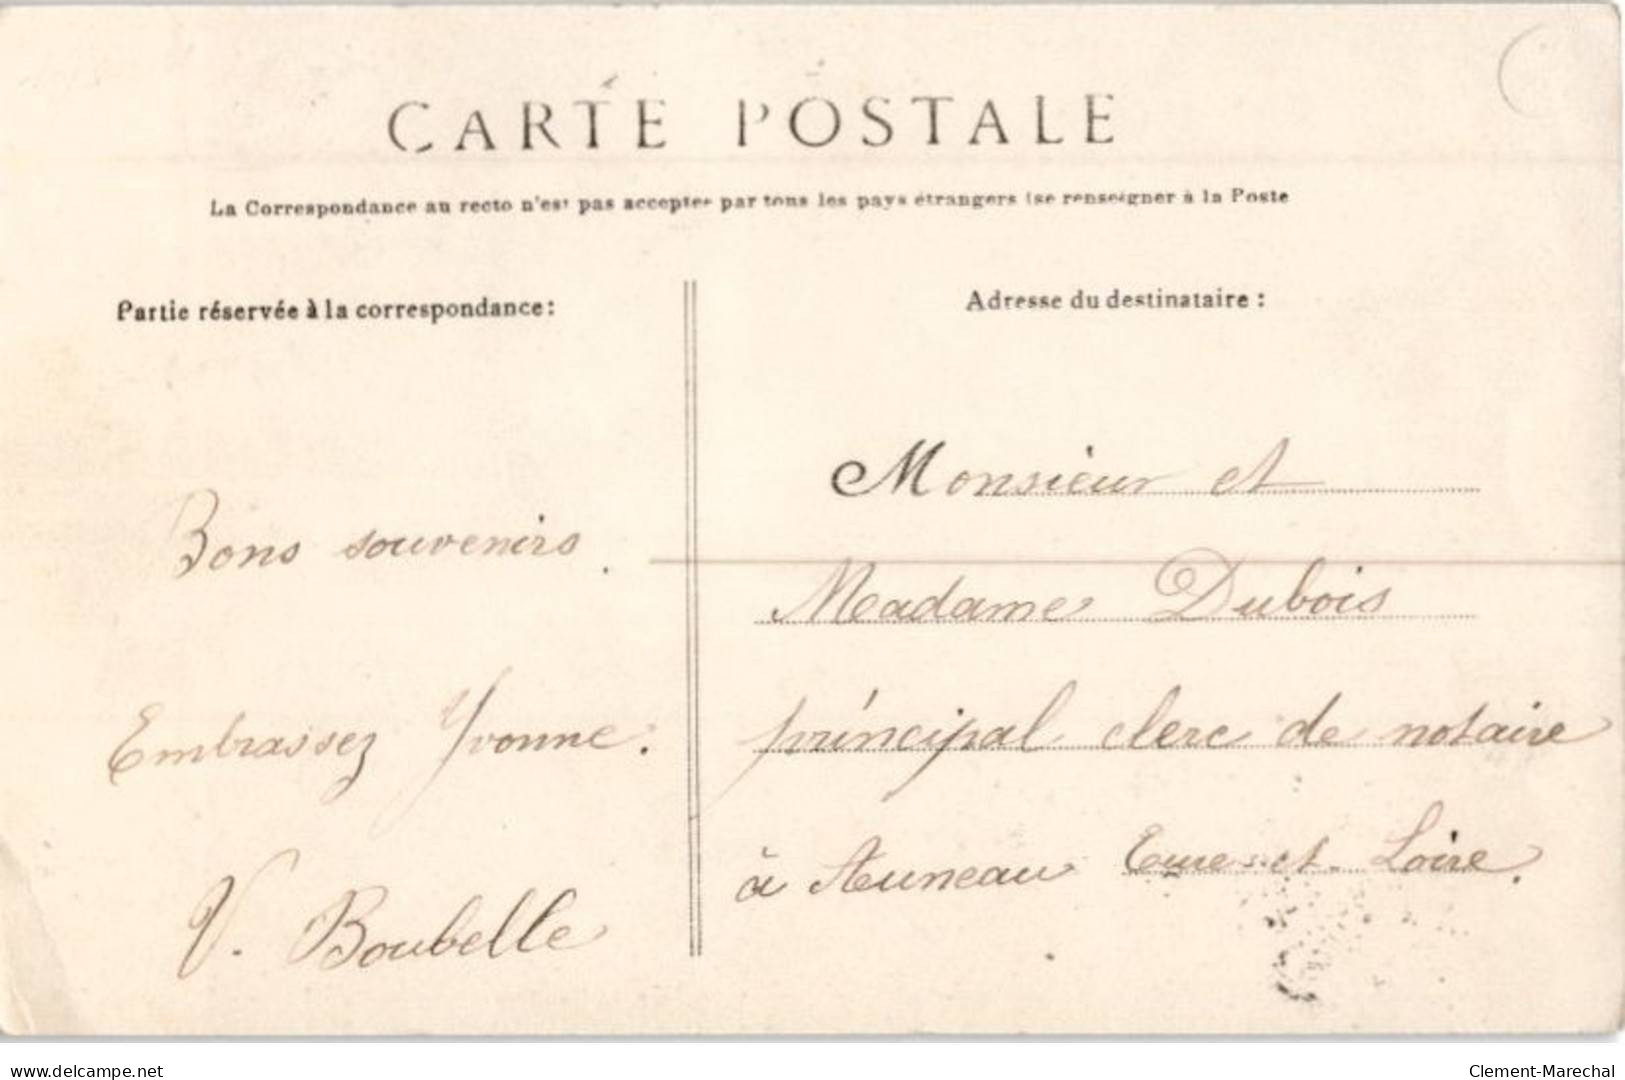 CARTE POSTALE
La Correspondance au recto n'est pas acceptée par tous les pays étrangers (se renseigner à la Poste
Partie réservée à la correspondance:
Adresse du destinataire :
Bons souvenirs.
Embrassez Yvonne.
V. Boubelle
Monsieur et
Madame Dubois
principal clerc de notaire
à Auneau Eure-et-Loire.
www.delcampe.net
Clement-Marechal